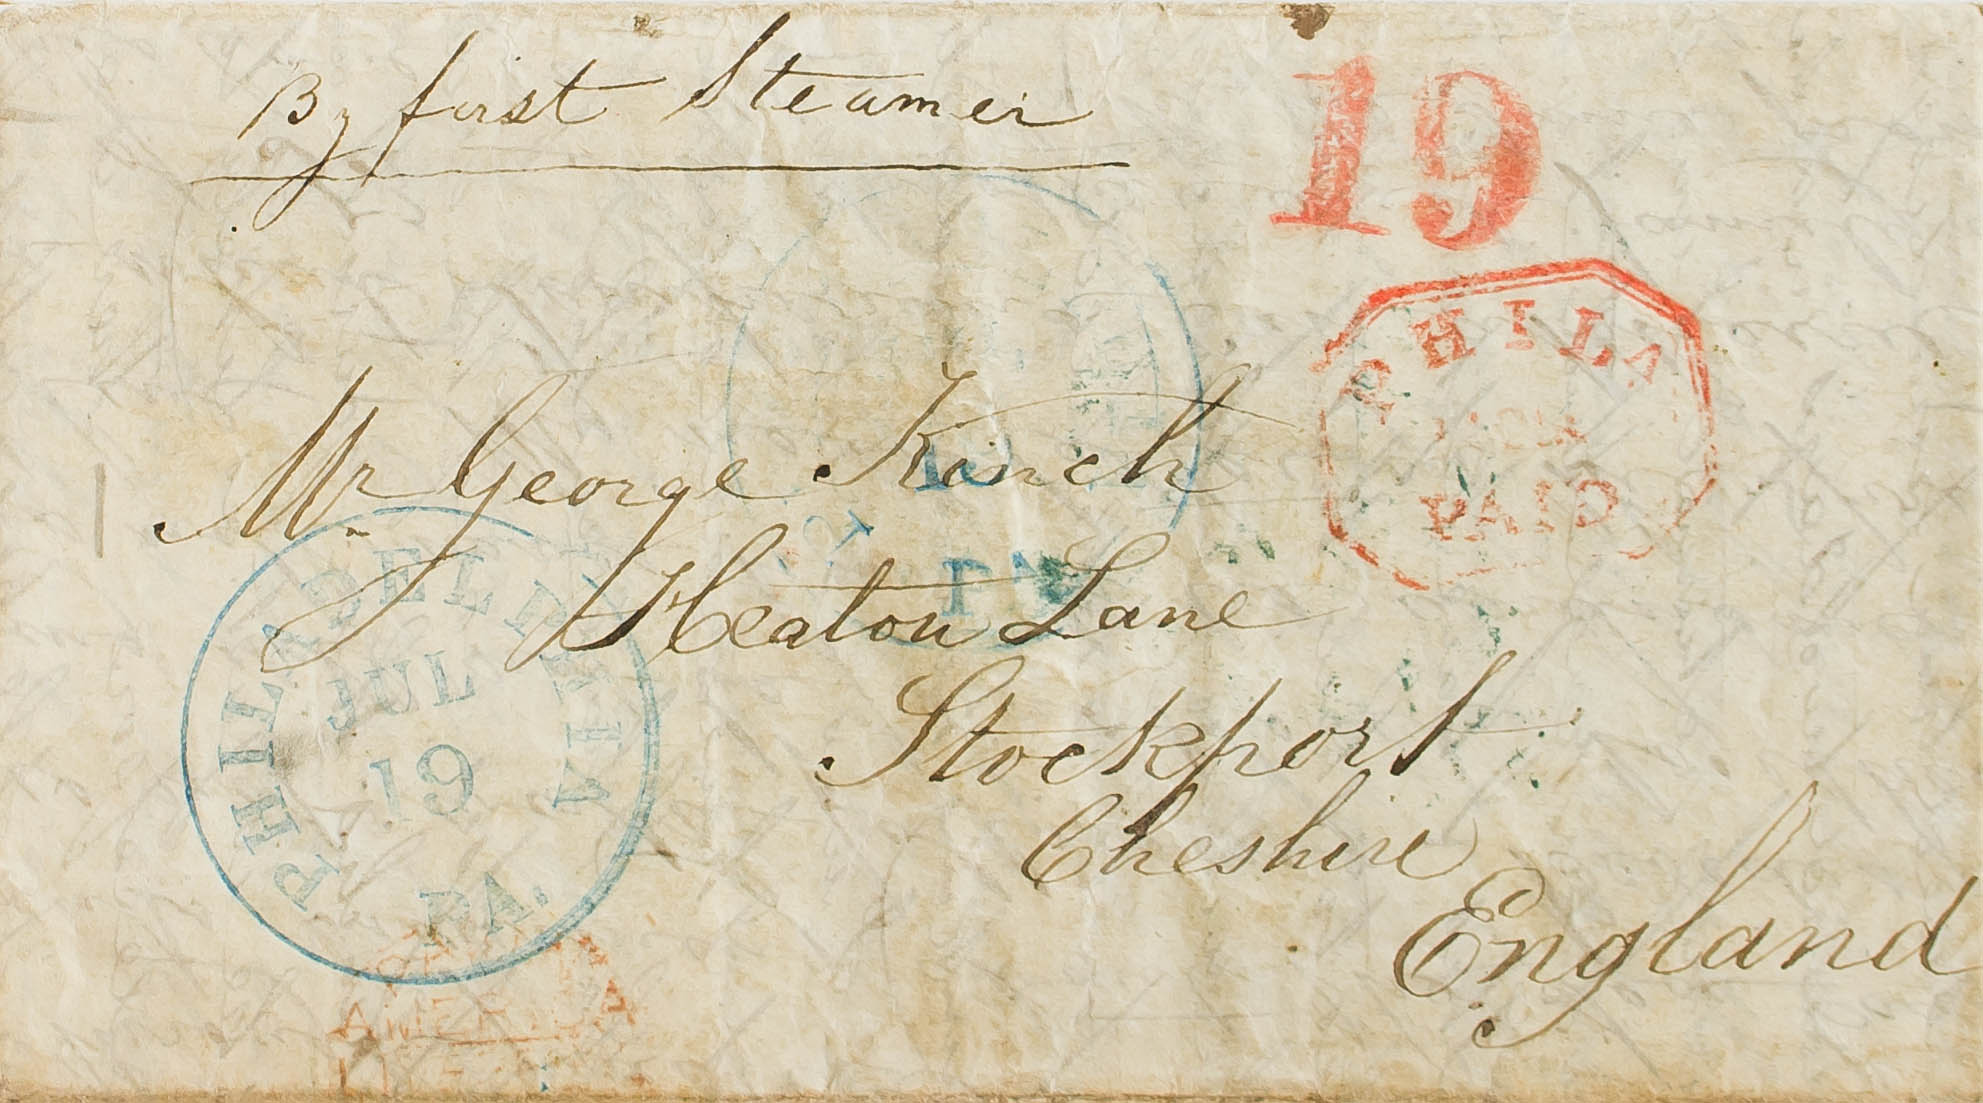 By first Steamer
19
PHILA
PAID
Mr George Kinch
Heaton Lane
Stockport
Cheshire
England
PHILADELPHIA
JUL
19
PA.
AMERICA